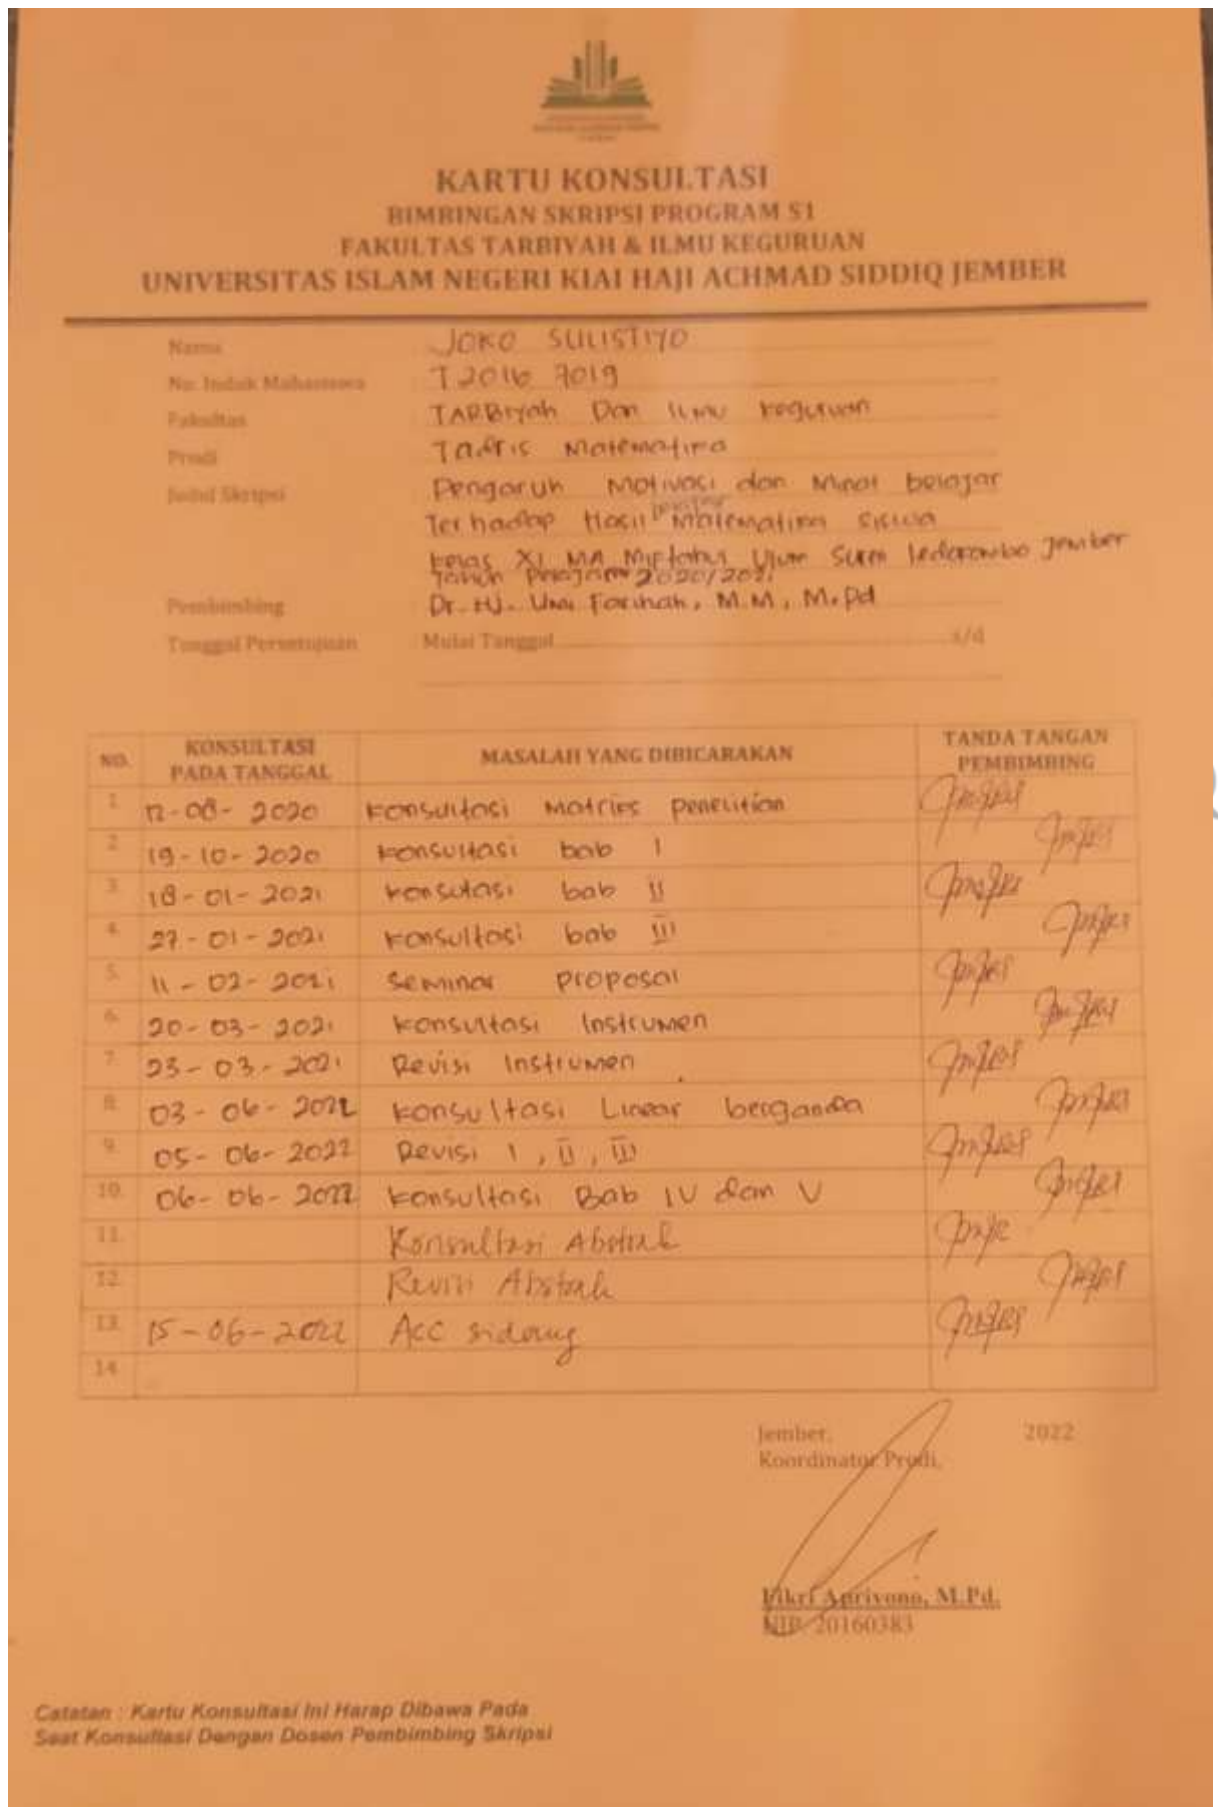 KARTU KONSULTASI
BIMBINGAN SKRIPSI PROGRAM S1
FAKULTAS TARBIYAH & ILMU KEGURUAN
UNIVERSITAS ISLAM NEGERI KIAI HAJI ACHMAD SIDDIQ JEMBER
Nama JOKO SULISTIYO
No. Induk Mahasiswa T2016 7019
Fakultas TARBIYAH Dan ILMU keguruan
Prodi Tadris Matematika
Judul Skripsi Pengaruh Motivasi dan Minat belajar
Terhadap Hasil belajar Matematika Siswa
kelas XI MA Miftahul Ulum Suren ledokombo Jember
Tahun Pelajaran 2020/2021
Pembimbing Dr. Hj. Umi Farihah, M.M, M.Pd
Tanggal Persetujuan Mulai Tanggal s/d
NO. KONSULTASI PADA TANGGAL MASALAH YANG DIBICARAKAN TANDA TANGAN PEMBIMBING
1. 12-08-2020 Konsultasi Matriks penelitian
2. 19-10-2020 konsultasi bab I
3. 18-01-2021 konsutasi bab II
4. 27-01-2021 konsultasi bab III
5. 11-02-2021 Seminar proposal
6. 20-03-2021 konsultasi Instrumen
7. 23-03-2021 Revisi Instrumen
8. 03-06-2022 konsultasi Linear berganda
9. 05-06-2022 Revisi I, II, III
10. 06-06-2022 konsultasi Bab IV dan V
11. Konsultasi Abstrak
12. Revisi Abstrak
13. 15-06-2022 Acc sidang
14.
Jember, 2022
Koordinator Prodi,
Fikri Apriyono, M.Pd.
NIP. 20160383
Catatan : Kartu Konsultasi Ini Harap Dibawa Pada
Saat Konsultasi Dengan Dosen Pembimbing Skripsi